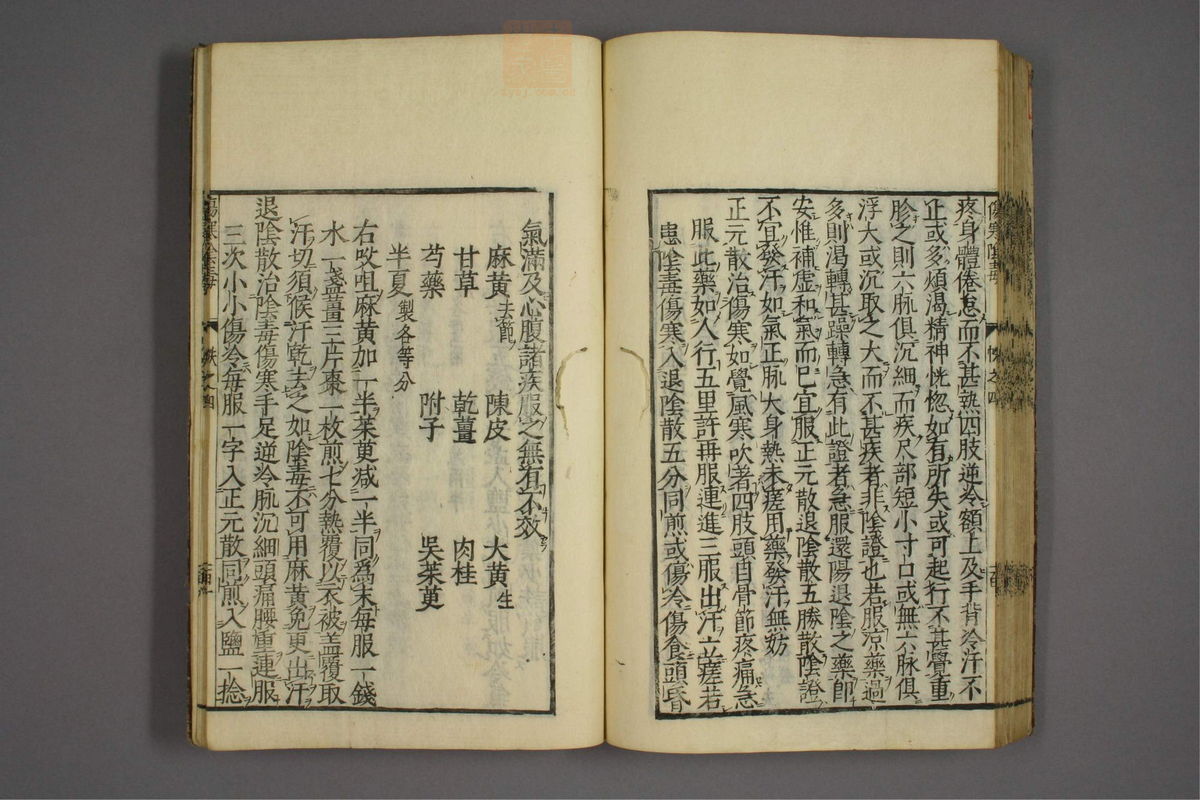 疼身體倦怠而不甚熱四肢逆冷額上及手背冷汗不
止或多煩渴精神恍惚如有所失或可起行不甚覺重
胗之則六脉俱沉細而疾尺部短小寸口或無六脉俱
浮大或沉取之大而不甚疾者非陰證也若服涼藥過
多則渴轉甚躁轉急有此證者急服還陽退陰之藥即
安惟補虚和氣而已宜服正元散退陰散五勝散陰證
不宜發汗如氣正脉大身熱未瘥用藥發汗無妨
正元散治傷寒如覺風寒吹著四肢頭目骨節疼痛急
服此藥如人行五里許再服連進三服出汗立瘥若
患陰毒傷寒入退陰散五分同煎或傷冷傷食頭昏
氣滿及心腹諸疾服之無有不效
麻黄去節 陳皮 大黄生
甘草 乾薑 肉桂
芍藥 附子 吳茱萸
半夏製各等分
右㕮咀麻黄加一半茱萸减一半同為末每服一錢
水一盞薑三片棗一枚煎七分熱覆以衣被盖覆取
汗切須候汗乾去之如陰毒不可用麻黄免更出汗
退陰散治陰毒傷寒手足逆冷脉沉細頭痛腰重連服
三次小小傷冷每服一字入正元散同煎入鹽一捻